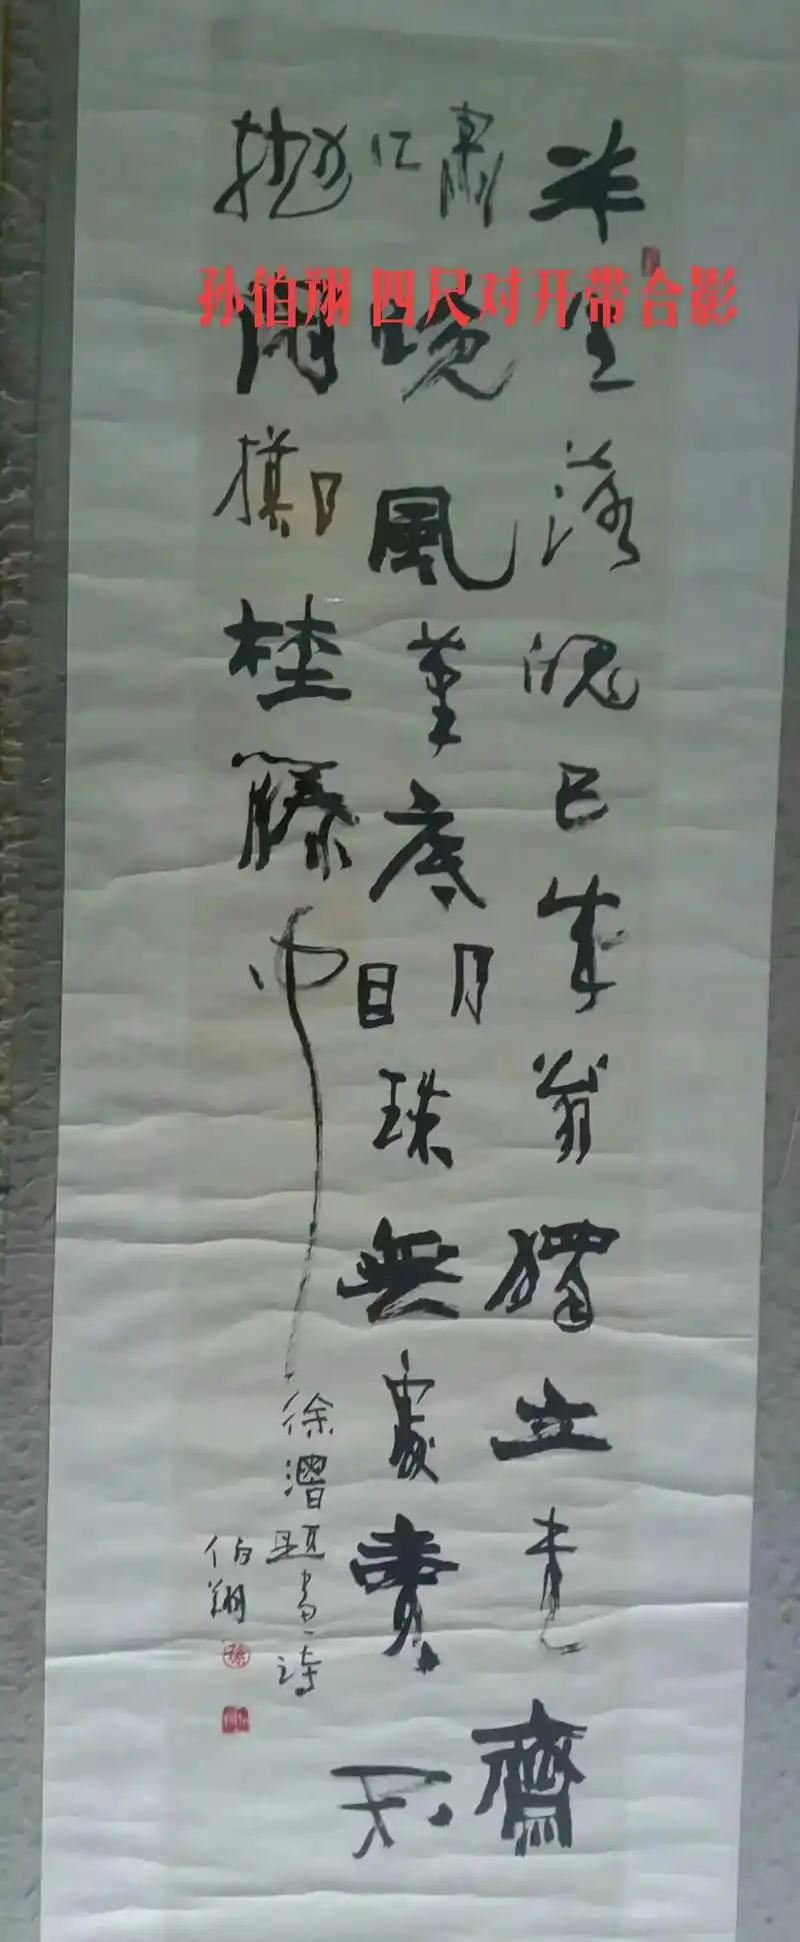 孙伯翔 四尺对开带合影
半生落魄已成翁獨立書齋
嘯晚風筆底明珠無處賣
閑抛閑擲野藤中
徐渭題畫詩
伯翔